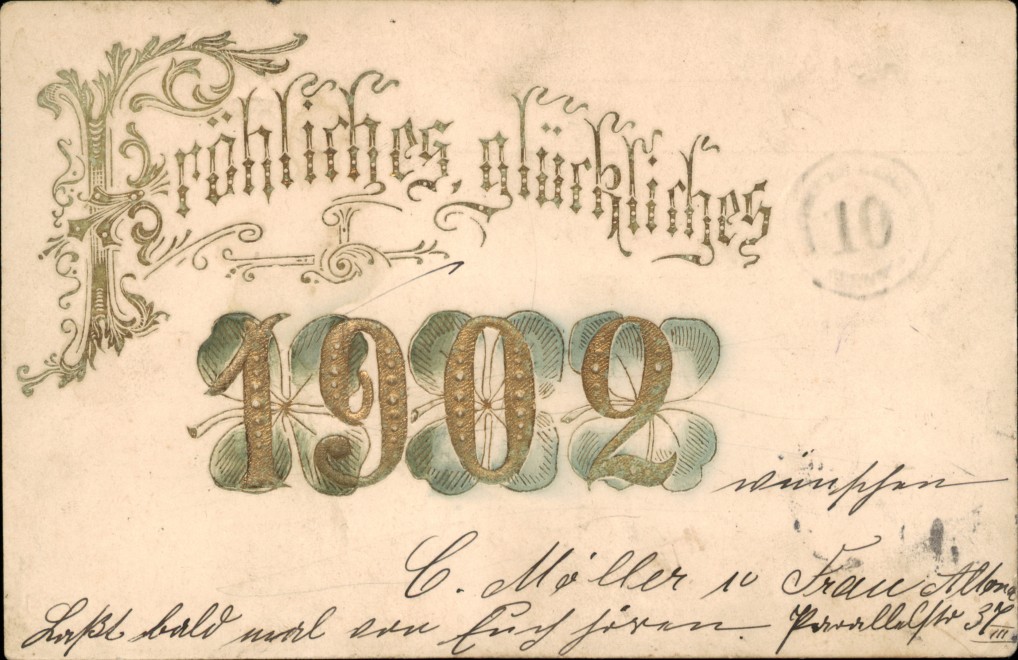 Fröhliches, glückliches
10
1902
wünschen
C. Möller u Frau Altona
Laßt bald mal von Euch hören. Parallelstr 37 III